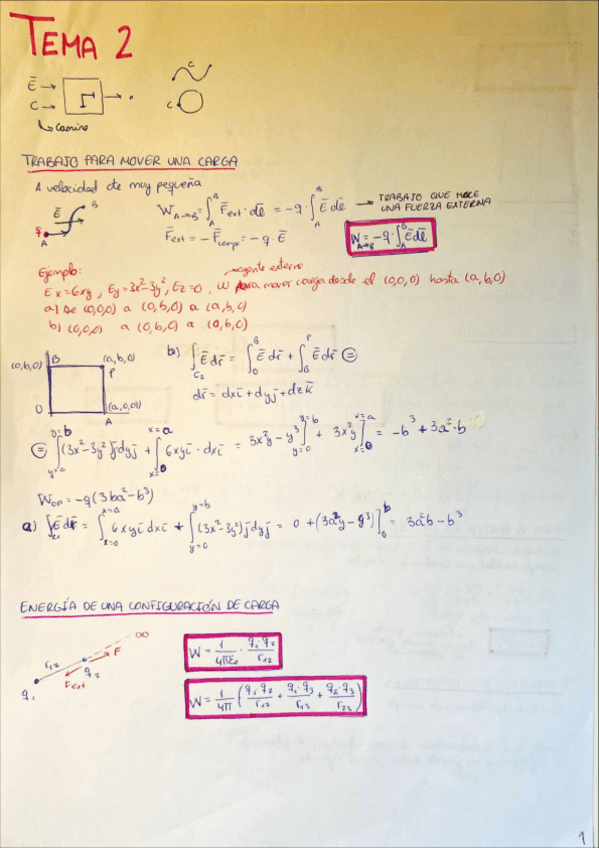 TEMA 2
Ē →
C →
↳ Camino
C
C
TRABAJO PARA MOVER UNA CARGA
A velocidad de muy pequeña
W A→B = ∫_A^B F̄ext · dl̄ = -q · ∫_A^B Ē dl̄ → TRABAJO QUE HACE UNA FUERZA EXTERNA
F̄ext = - F̄campo = -q · Ē
W A→B = -q · ∫_A^B Ē dl̄
Ē
B
q
A
Ejemplo:
agente externo
Ex = 6xy, Ey = 3x² - 3y², Ez = 0. W para mover carga desde el (0,0,0) hasta (a,b,0)
a) De (0,0,0) a (a,0,0) a (a,b,0)
b) (0,0,0) a (0,b,0) a (a,b,0)
(0,b,0) B (a,b,0)
P
O (a,0,0)
A
b) ∫_C2 Ē dr̄ = ∫_0^B Ē dr̄ + ∫_B^P Ē dr̄ =
dr̄ = dx ī + dy j̄ + dz k̄
= ∫_{y=0}^{y=b} (3x² - 3y²) j̄ dy j̄ + ∫_{x=0}^{x=a} 6xy ī · dx ī = 3x²y - y³ ]_{y=0}^{y=b} + 3x²y ]_{x=0}^{x=a} = -b³ + 3a²·b
W OP = -q (3ba² - b³)
a) ∫ Ē dr̄ = ∫_{x=0}^{x=a} 6xy ī dx ī + ∫_{y=0}^{y=b} (3x² - 3y²) j̄ dy j̄ = 0 + (3a²y - y³) ]_0^b = 3a²b - b³
ENERGÍA DE UNA CONFIGURACIÓN DE CARGA
∞
F
r12
q2
Fext
q1
W = 1/4πε₀ · q1·q2/r12
W = 1/4π (q1·q2/r12 + q1·q3/r13 + q2·q3/r23)
1